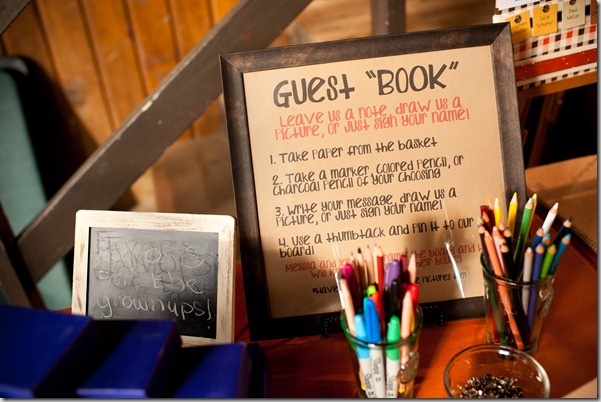 Julia
Paul
Miller
Guest "Book"
Leave us a note, draw us a
picture, or just sign your name!
1. Take paper from the basket
2. Take a marker, colored pencil, or
charcoal pencil of your choosing
3. Write your message, draw us a
picture, or just sign your name!
4. Use a thumbtack and pin it to our
board!
Melissa and board and
will their house!
pictures too!
for the
grownups!